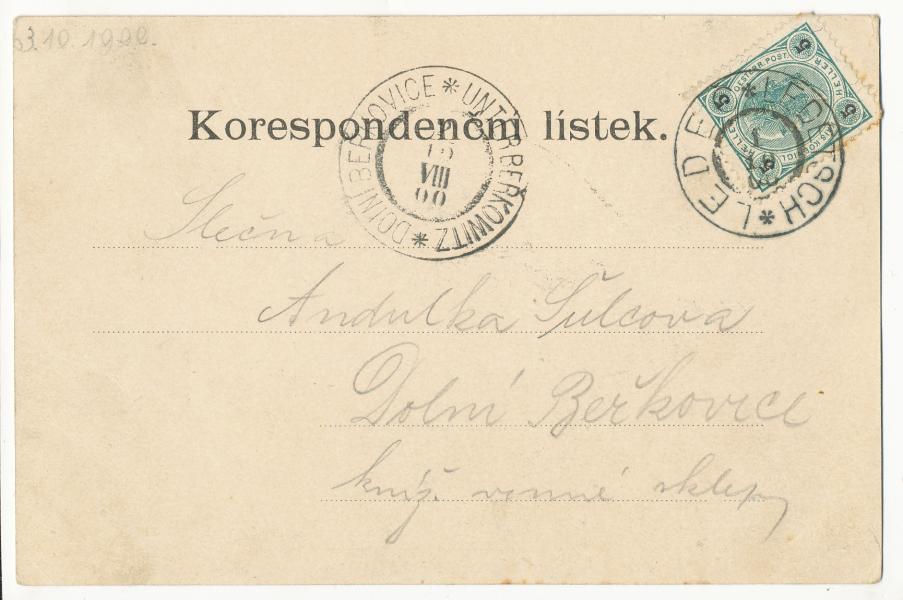 Korespondenční lístek.
DOLNÍ BEŘKOVICE * UNTERBEŘKOWITZ *
15
VIII
00
LEDEČ * LEDETSCH *
5 5 5 5
HELLER
OESTERR. POST.
HELLER
Slečna
Andulka Šulcova
Dolní Beřkovice
kníž. vinné sklepy